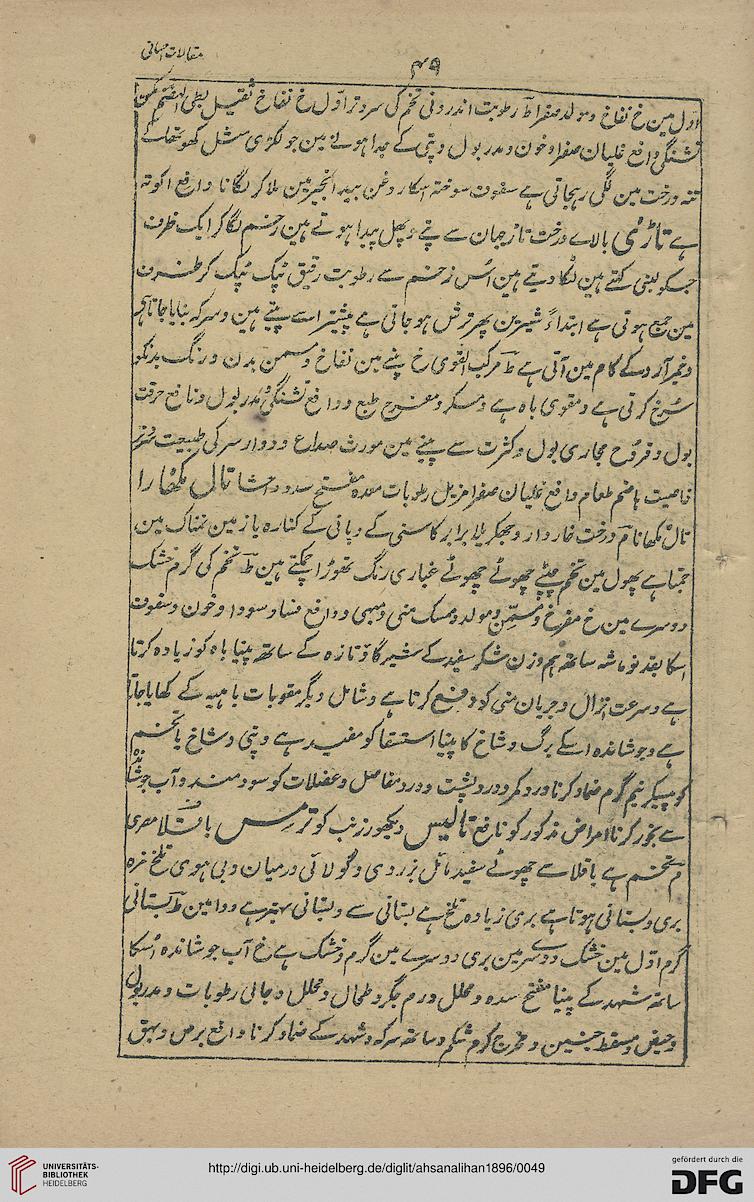 مقالات احسانی
۴۹
اول مین خ نفاخ و مولد صفرا ط رطوبت اندرونی تخم کی سرد تر اول خ نفاخ ثقیل بطی الہضم
تشنگی دافع غلیان صفرا و خون و مدر بول و پتی کے جدا ہونے مین جو لکڑی مثل کھوتھا کے
تنہ درخت مین لگی رہجاتی ہے سفوف سوختہ اسکا روغن بید انجیر مین ملا کر لگانا دافع اکوتہ
ہے تاڑی بالاے درخت تاڑ جہان سے پتے و پھل پیدا ہوتے ہین زخم لگا کر ایک ظرف
جسکو لبنی کہتے ہین لٹکا دیتے ہین اس زخم سے رطوبت رقیق ٹپک ٹپک کر ظرف
مین جمع ہوتی ہے ابتداءً شیرین پھر ترش ہو جاتی ہے بیشتر اسے پیتے ہین و سرکہ بنایا جاتا ہی
و خمیر آرد کے کام مین آتی ہے ط مرکب القوی خ پینے مین نفاخ و مسمن بدن و رنگ بدنکو
سرخ کرتی ہے و مقوی باہ ہے و مسکر و مفرح طبع و دافع تشنگی و مدر بول و نافع حرقت
بول و قروح مجاری بول و کثرت سے پینے مین مورث صداع و دوار سر کی طبیعت
خاصیت ہاضم طعام دافع غلیان صفرا مزیل رطوبات معدہ مفتح سدد و احشا تال مکھارا
تال مکھانا م درخت خاردار و بھکریلا برابر کاسنی کے و پانی کے کنارہ یا زمین نمناک مین
جمتا ہے پھول مین تخم چپٹے چھوٹے چھوٹے غباری رنگ تھوڑا چمکتے ہین ط تخم کی گرم خشک
دوسرے مین خ مفرح و مسمن و مولد و مسک منی و مبہی و دافع فساد سودا و خون و سفوف
اسکا بقدر نو ماشہ ساتھ ہم وزن شکر سفید کے شیر گاو تازہ کے ساتھ پینا باہ کو زیادہ کرتا
ہے و سرعت انزال و جریان منی کو دفع کرتا ہے و شامل دیگر مقویات باہیہ کے کھایا جاتا
ہے و جوشاندہ اسکے برگ و شاخ کا پینا استسقا کو مفید ہے و پتی و شاخ یا تخم
کو پیسکر نیم گرم ضماد کرنا درد کمر و درد پشت و درد مفاصل و عضلات کو سود مند و آب جوشاندہ
سے بخور کرنا امراض مذکور کو نافع تالیس دیکھو زرنب کو ترمس باقلا مصری
م تخم ہے باقلا سے چھوٹے سفید مائل بزردی و گولائی درمیان دبی ہوی تلخ مزہ
بری و بستانی ہوتا ہے بری زیادہ تلخ ہے بستانی سے و بستانی بہتر ہے دوا مین ط بستانی
گرم اول مین خشک دوسرے مین بری دوسرے مین گرم و خشک ہے خ آب جوشاندہ اسکا
ساتھ شہد کے پینا مفتح سدہ و محلل ورم جگر و طحال و محلل و جالی رطوبات و مدر بول
و حیض و مسقط جنین و مخرج کرم شکم و ساتھ سرکہ و شہد کے ضماد کرنا دافع برص و بہق
UNIVERSITÄTS-
BIBLIOTHEK
HEIDELBERG
http://digi.ub.uni-heidelberg.de/diglit/ahsanalihan1896/0049
gefördert durch die
DFG